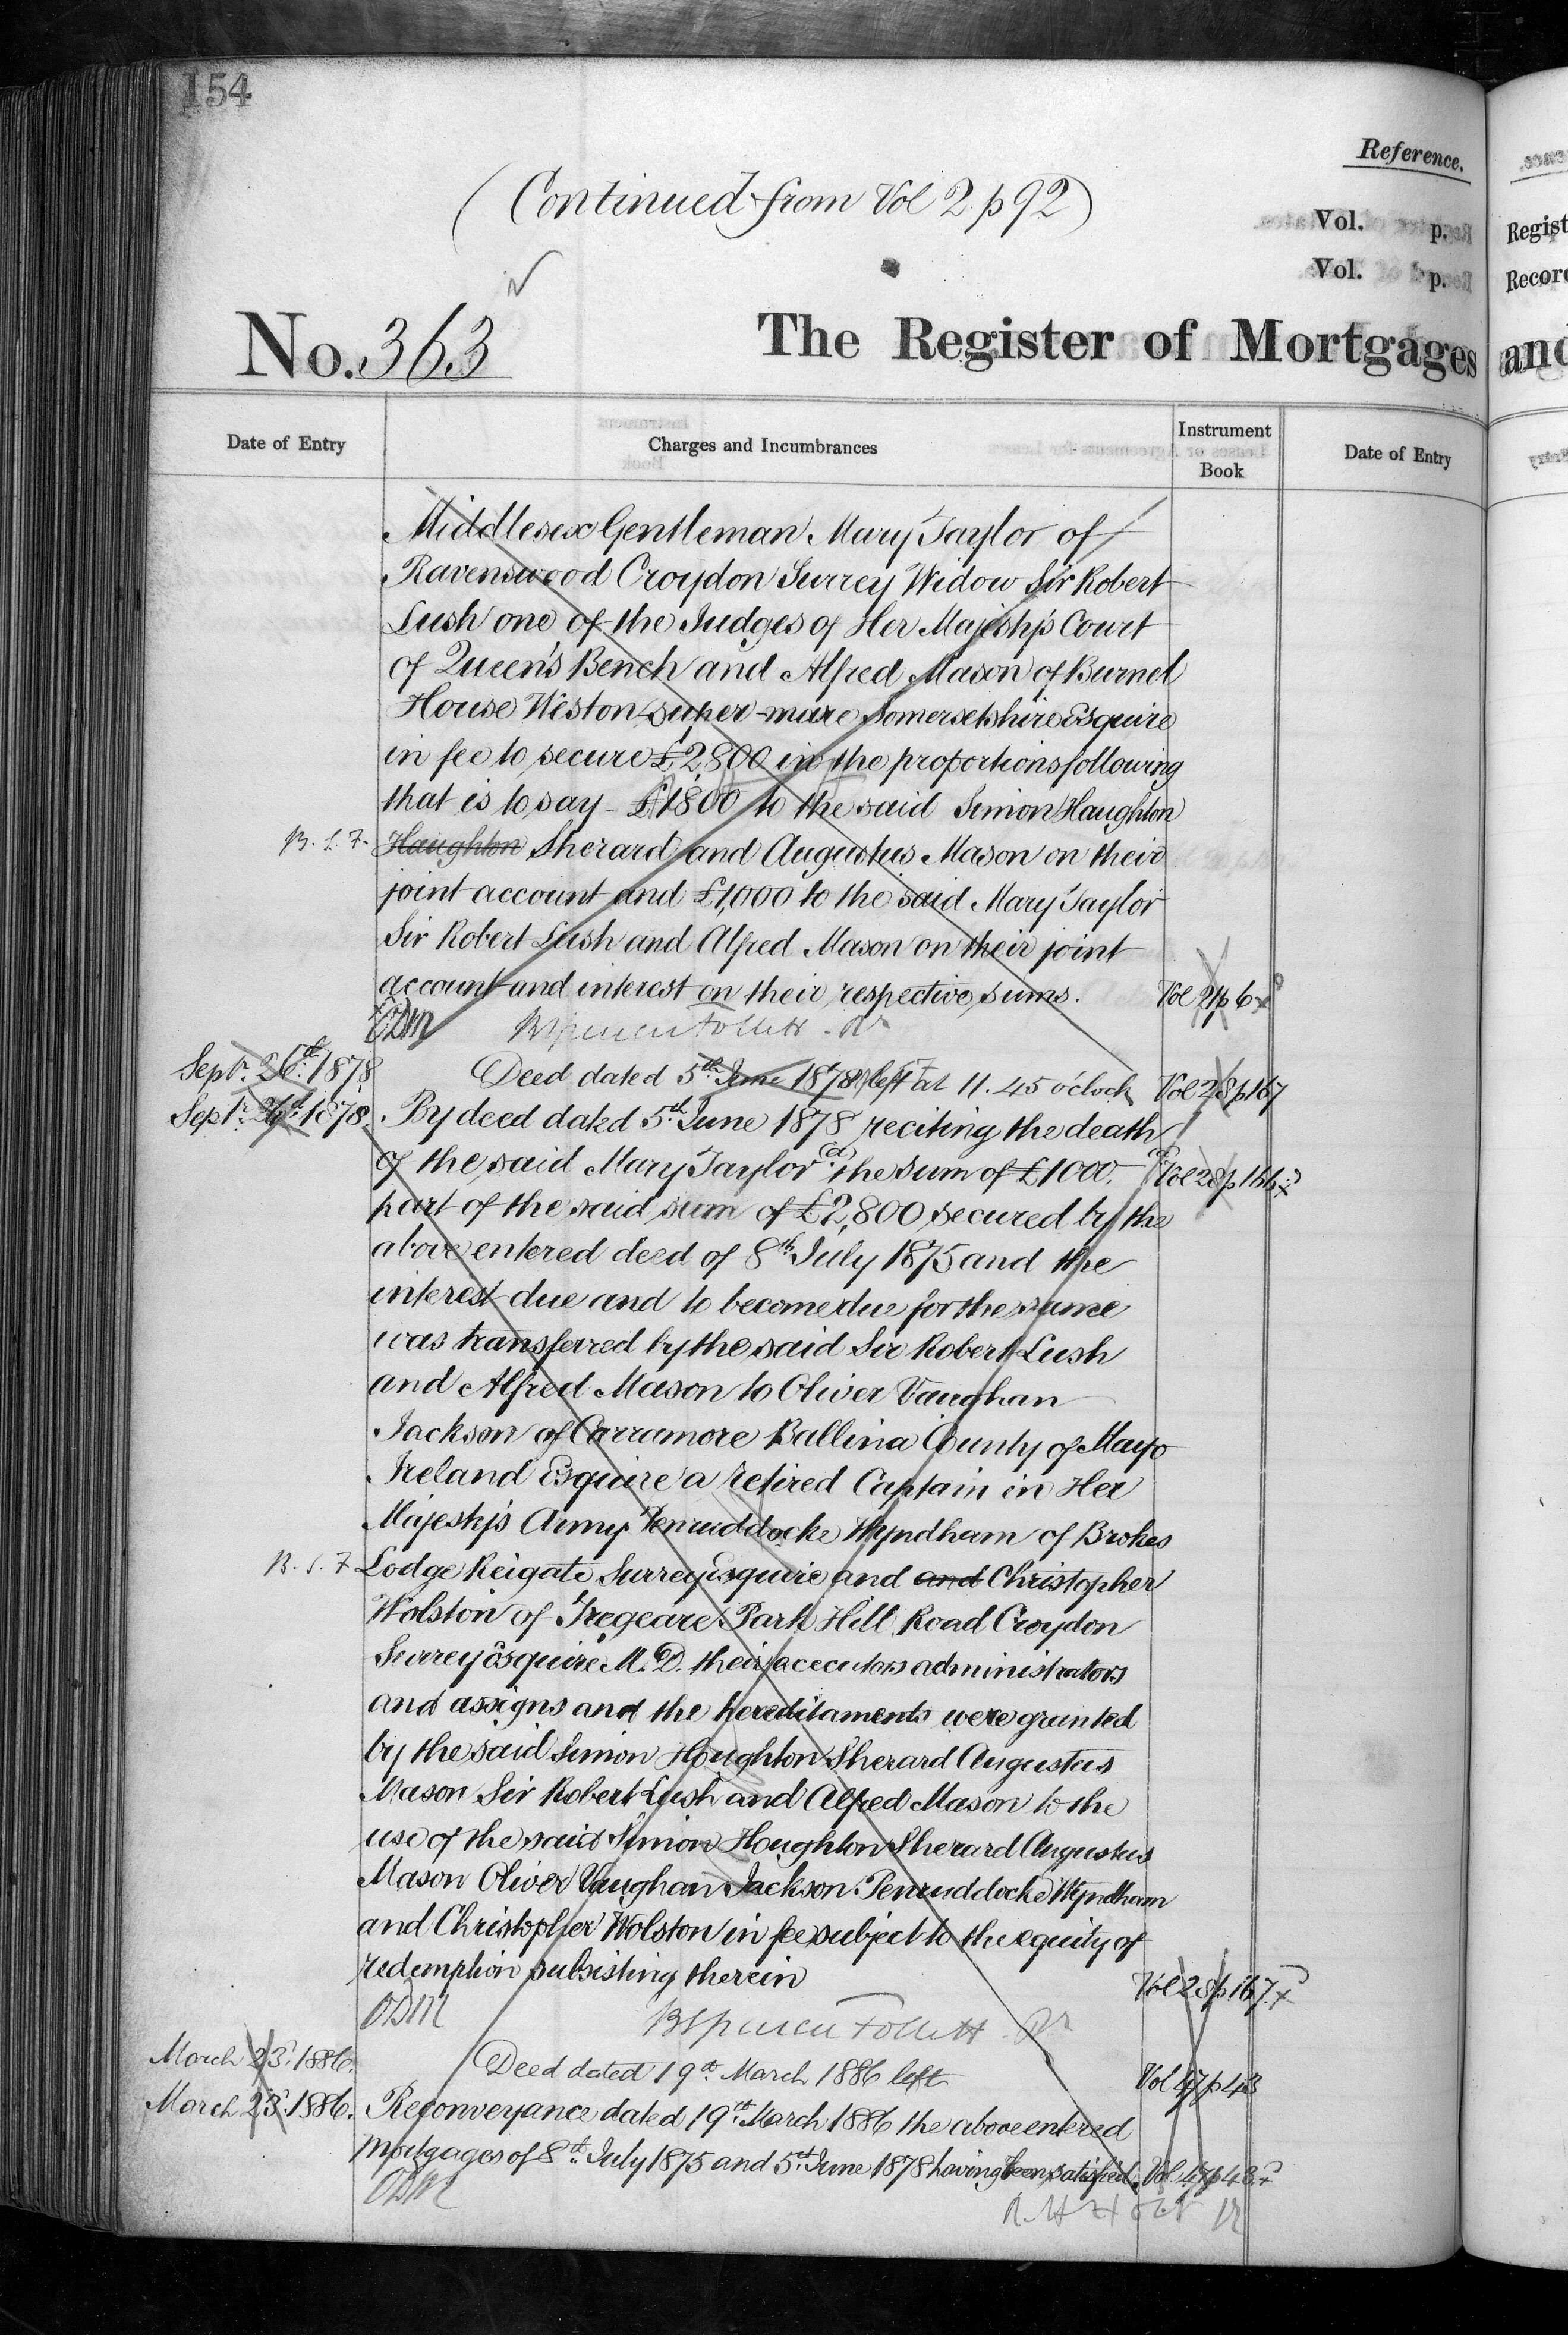 154
Reference.
(Continued from Vol 2 p 92)
Vol. p.
Vol. p.
No. 363
The Register of Mortgages
Date of Entry
Charges and Incumbrances
Instrument Book
Date of Entry
Middlesex Gentleman Mary Taylor of
Ravenswood Croydon Surrey Widow Sir Robert
Lush one of the Judges of Her Majesty's Court
of Queen's Bench and Alfred Mason of Burnel
House Weston-super-mare Somersetshire Esquire
in fee to secure £2,800 in the proportions following
that is to say - £1800 to the said Simon Haughton
B. S. F. Haughton Sherard and Augustus Mason on their
joint account and £1,000 to the said Mary Taylor
Sir Robert Lush and Alfred Mason on their joint
account and interest on their respective sums. Vol 21 p 6
ODM BSpencer Follett
Sept. 26th 1878 Deed dated 5th June 1878 left at 11.45 o'clock Vol 28 p 167
Sept. 26th 1878. By deed dated 5th June 1878 reciting the death
of the said Mary Taylor (a) the sum of £1000. (a) Vol 28 p 166
part of the said sum of £2,800 secured by the
above entered deed of 8th July 1875 and the
interest due and to become due for the same
was transferred by the said Sir Robert Lush
and Alfred Mason to Oliver Vaughan
Jackson of Carramore Ballina County of Mayo
Ireland Esquire a retired Captain in Her
Majesty's Army Penruddocke Wyndham of Brokes
B. S. F. Lodge Reigate Surrey Esquire and and Christopher
Wolston of Tregeare Park Hill Road Croydon
Surrey Esquire M.D. their executors administrators
and assigns and the hereditaments were granted
by the said Simon Houghton Sherard Augustus
Mason Sir Robert Lush and Alfred Mason to the
use of the said Simon Houghton Sherard Augustus
Mason Oliver Vaughan Jackson Penruddocke Wyndham
and Christopher Wolston in fee subject to the equity of
redemption subsisting therein Vol 28 p 167
ODM BSpencer Follett
March 23. 1886. Deed dated 19th March 1886 left Vol 47 p 43
March 23. 1886. Reconveyance dated 19th March 1886 the above entered
mortgages of 8th July 1875 and 5th June 1878 having been satisfied. Vol 47 p 43
ODM
Regist
Record
and